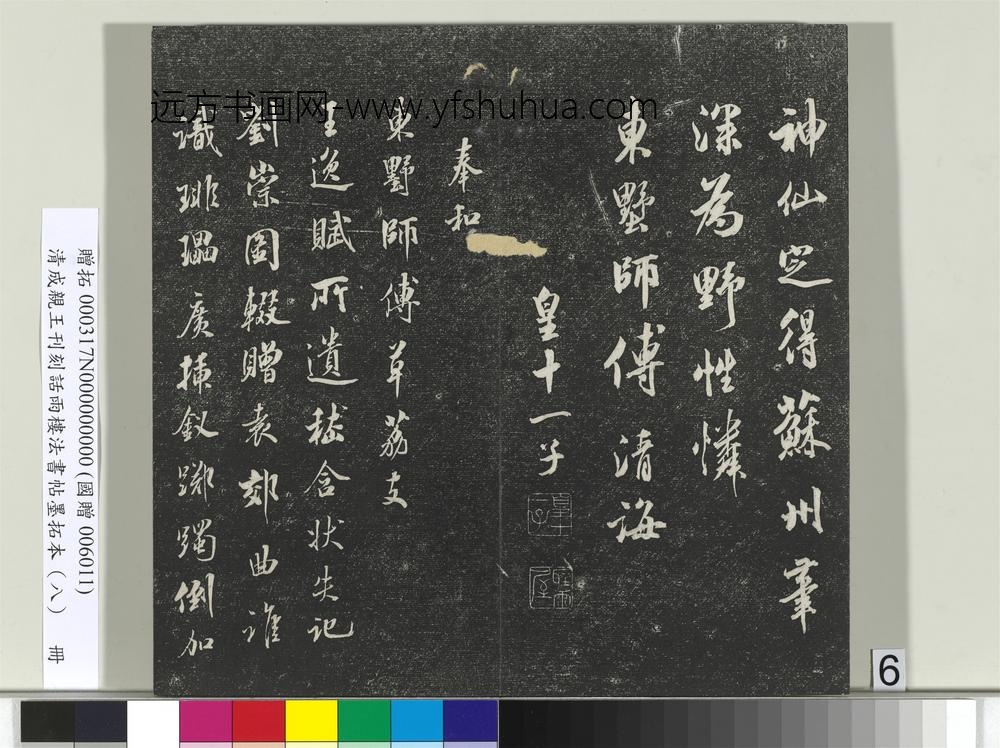 神仙定得蘇州筆
深為野性憐
東墅師傅清誨
皇十一子
奉和
東墅師傅草荔支
王逸賦所遺嵇含狀失記
劉崇圖輟贈袁郊曲誰
識琲瑥廣揷釵躑躅倒加
远方书画网-www.yfshuhua.com
贈拓 000317N000000000 (國贈 006011)
清成親王刊刻話雨樓法書帖墨拓本(八) 冊
6